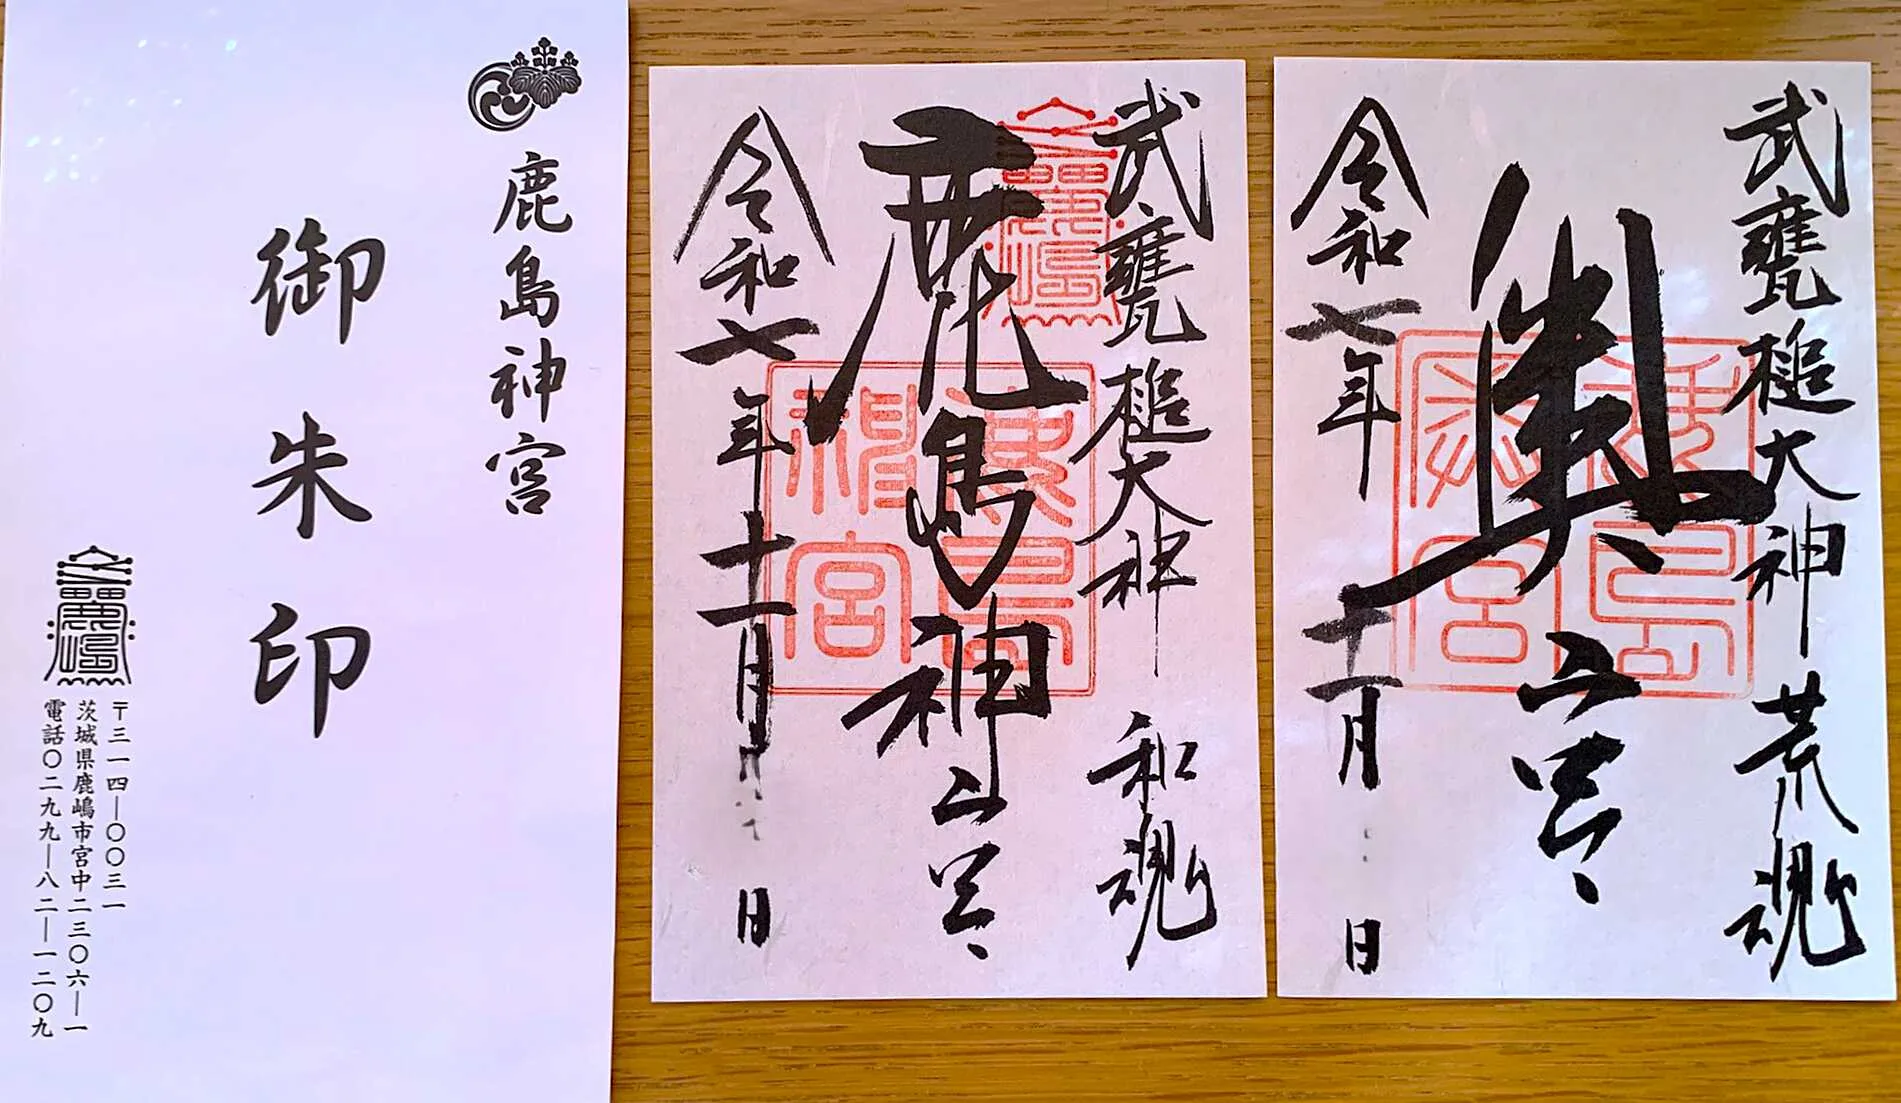 鹿島神宮
御朱印
鹿嶋
〒三一四―〇〇三一
茨城県鹿嶋市宮中二三〇六―一
電話〇二九九―八二―一二〇九
武甕槌大神 和魂
鹿嶋
鹿島神宮
鹿島神宮
令和七年十一月 日
武甕槌大神 荒魂
奥宮
令和七年十一月 日